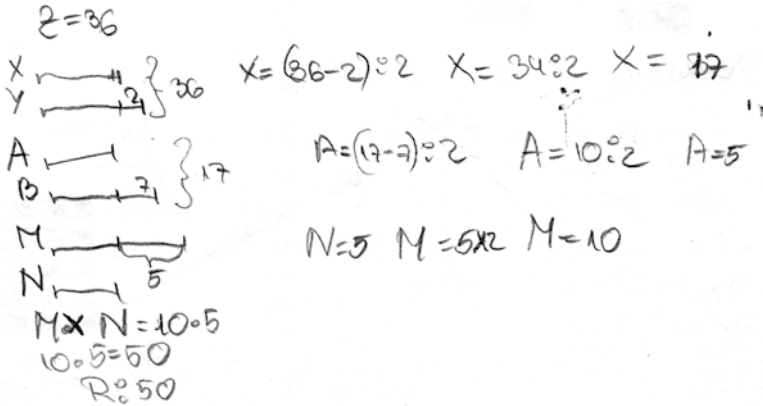 Z=36
X
Y 2 } 36 X=(36-2):2 X=34:2 X=17
A
B 7 } 17 A=(17-7):2 A=10:2 A=5
M 5 N=5 M=5x2 M=10
N
MxN=10·5
10·5=50
R:50